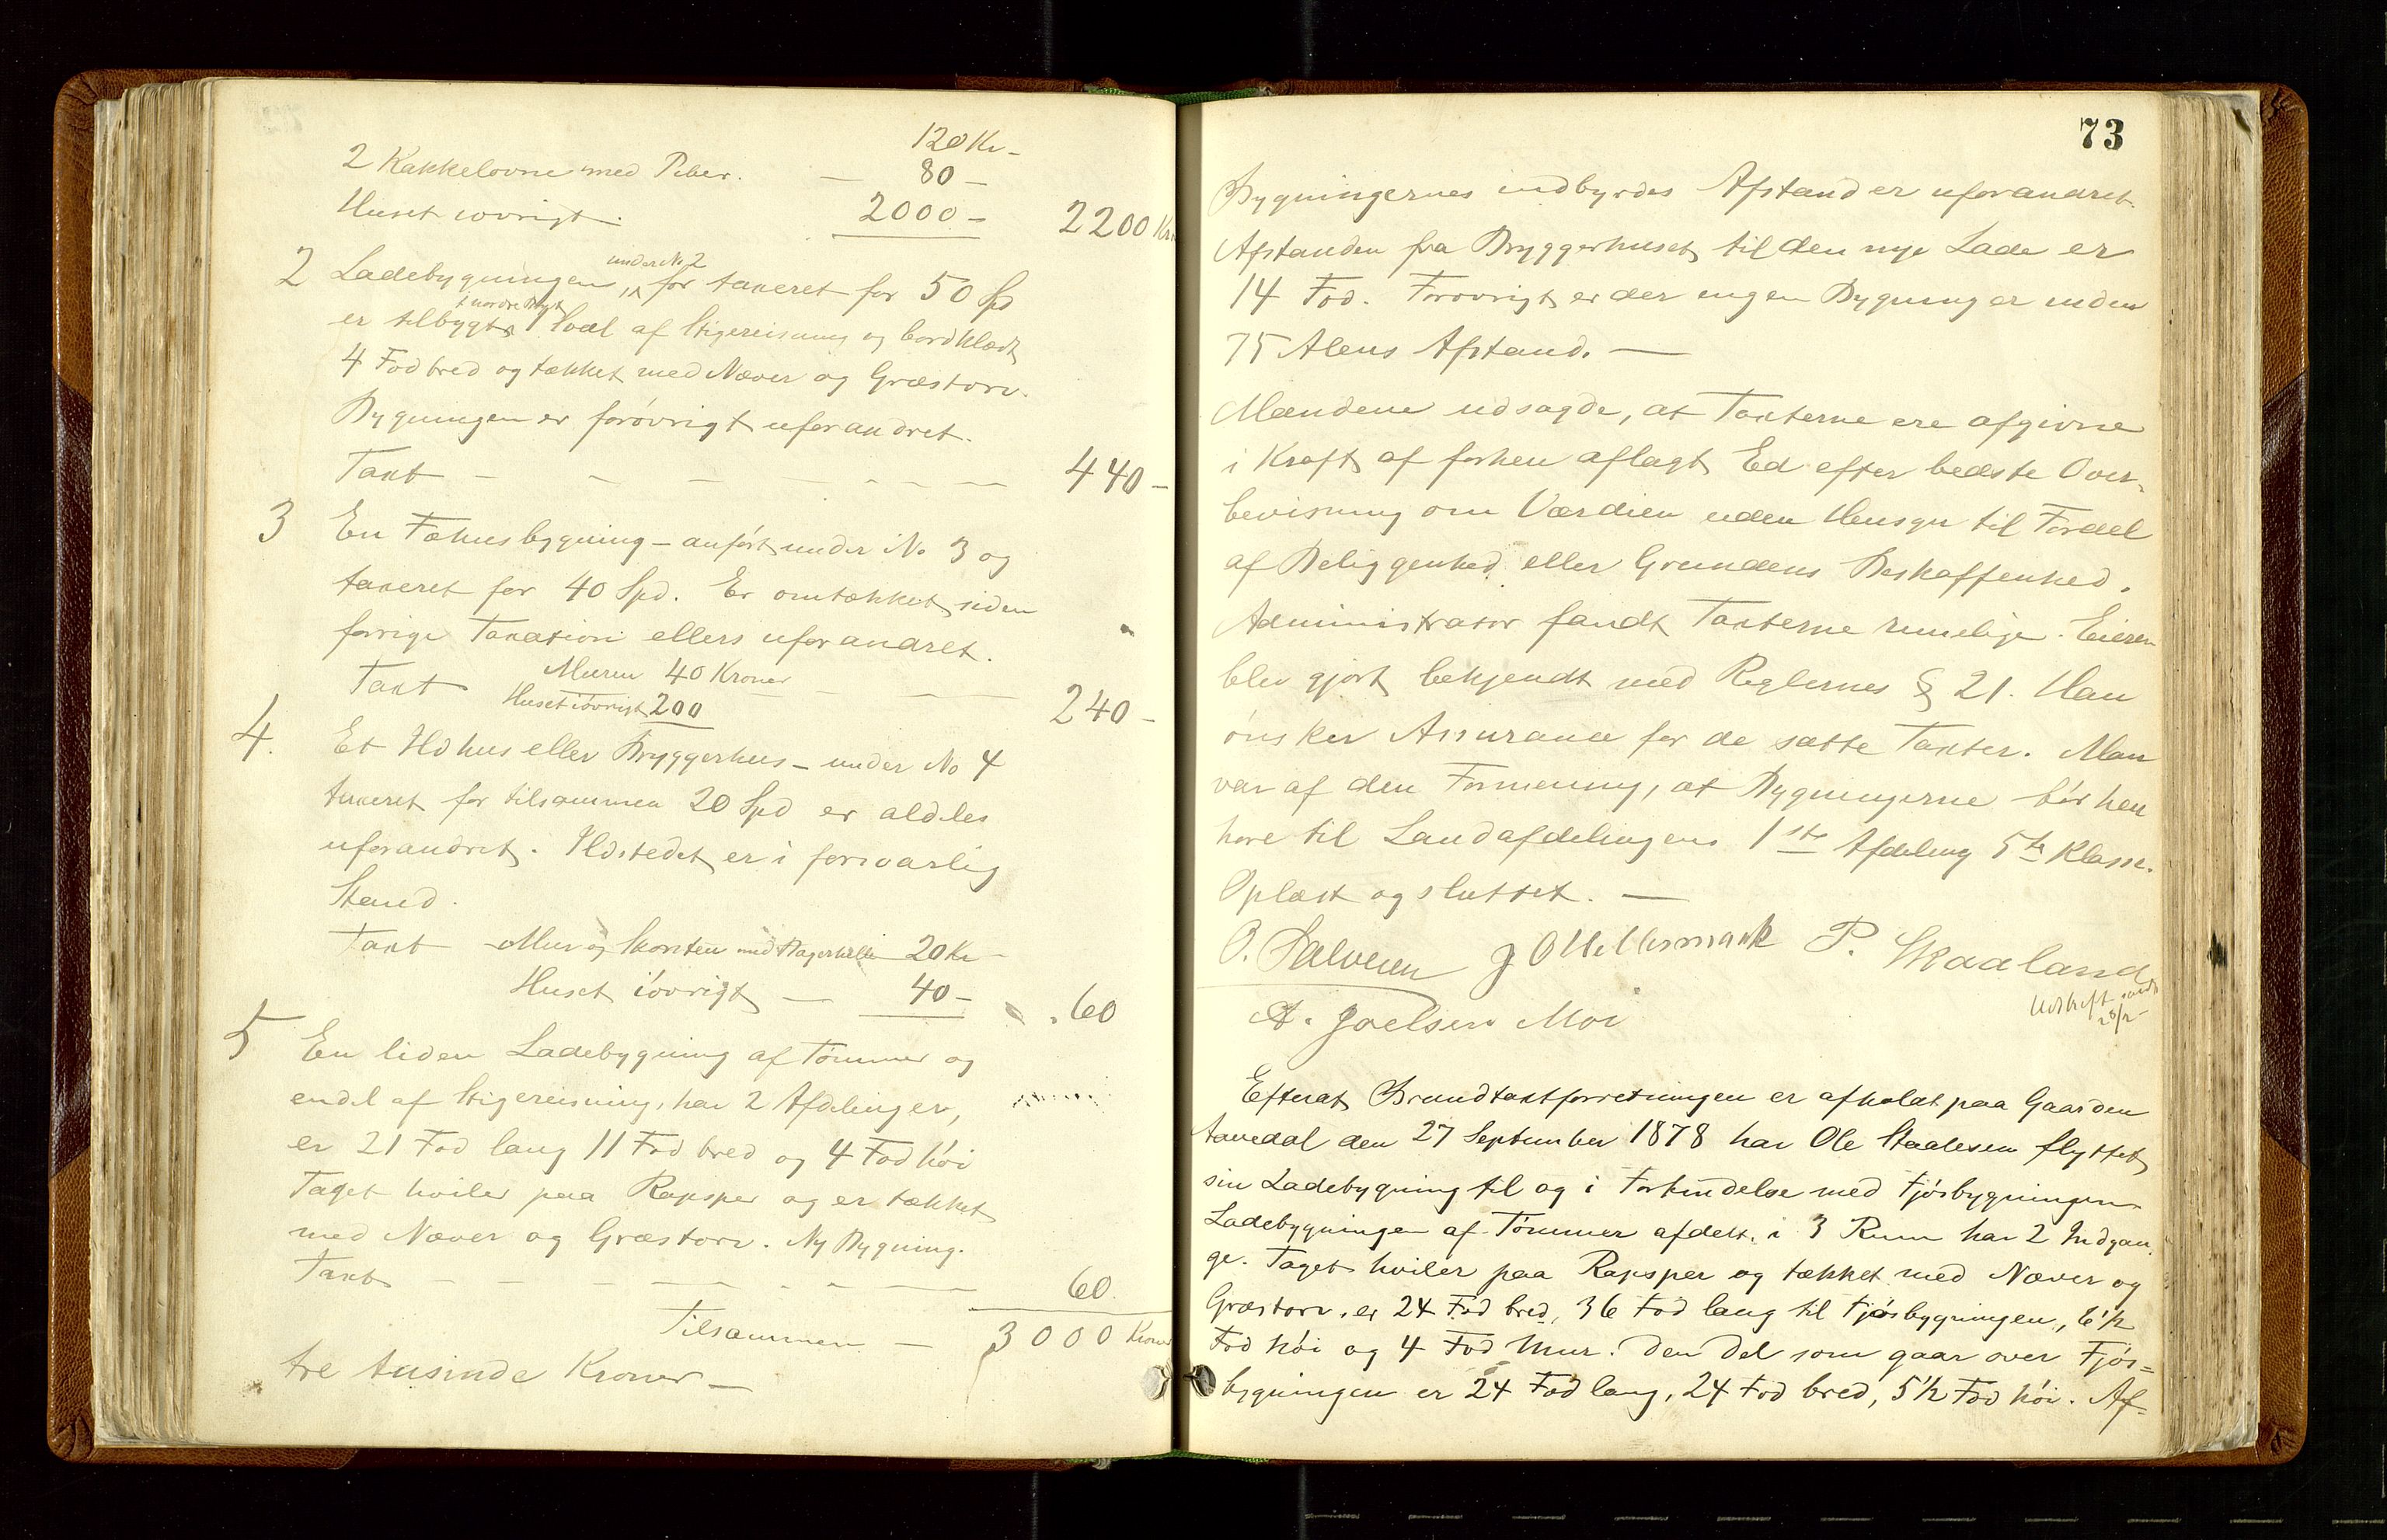 120 Kr –
2 Kakkelovne med Piber. — 80 –
Huset iøvrigt. 2000 – 2200 Kr
2 Ladebygningen, under No 2 før taxeret for 50 Sp
er tilbygt i nordre Sval af Stigereisning og bordklædt
4 Fod bred og tækket med Næver og Græstorv.
Bygningen er forøvrigt uforandret.
Taxt – – – – – – – 440 –
3 En Fæhusbygning – anført under No 3 og
taxeret for 40 Spd. Er omtækket siden
forrige Taxation ellers uforandret.
Taxt Muren 40 Kroner – –
Huset iøvrigt 200 240 –
4. Et Ildhus eller Bryggerhus – under No 4
taxeret for tilsammen 20 Spd er aldeles
uforandret. Ildstedet er i forsvarlig
Stand.
Taxt – Mur og Skorsten med Bagerhelle 20 Kr –
Huset iøvrigt — 40 – 60
5 En liden Ladebygning af Tømmer og
endel af Stigereisning, har 2 Afdelinger,
er 21 Fod lang 11 Fod bred og 4 Fod høi
Taget hviler paa Rapsper og er tækket
med Næver og Græstorv. Ny Bygning.
Taxt – – – – – – – 60.
Tilsammen — 3000 Kroner
tre tusinde Kroner —
73
Bygningernes indbyrdes Afstand er uforandret.
Afstanden fra Bryggerhuset til den nye Lade er
14 Fod. Forøvrigt er der ingen Bygninger inden
75 Alens Afstand. —
Mændene udsagde, at Taxterne ere afgivne
i Kraft af forhen aflagt Ed efter bedste Over-
bevisning om Værdien uden Hensyn til Fordel
af Beliggenhed eller Grundens Beskaffenhed.
Administrator fandt Taxterne rimelige. Eieren
blev gjort bekjendt med Reglernes § 21. Han
ønsker Assurance for de satte Taxter. Man
var af den Formening, at Bygningerne bør hen
høre til Landafdelingens 1ste Afdeling 5te Klasse.
Oplæst og sluttet. —
O. Salvesen J O Hellesmark P. Skaaland
A. Joelsen Moi
Udskrift sendt
28/2
Efterat Brandtaxtforretningen er afholdt paa Gaarden
Aavedal den 27 September 1878 har Ole Staalesen flyttet
sin Ladebygning til og i Forbindelse med Fjøsbygningen
Ladebygningen af Tømmer afdelt i 3 Rum har 2 Indgan
ge. Taget hviler paa Rapsper og tækket med Næver og
Græstorv, er 24 Fod bred, 36 Fod lang til Fjøsbygningen, 6 1/2
Fod høi og 4 Fod Mur. Den Del som gaar over Fjøs=
bygningen er 24 Fod lang, 24 Fod bred, 5 1/2 Fod høi. Af-